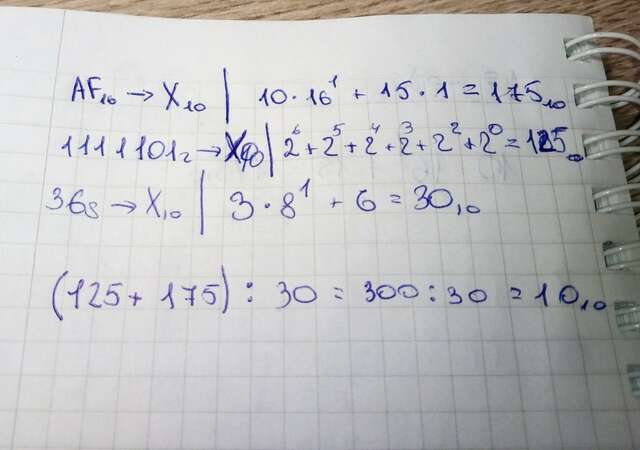 AF₁₆ → X₁₀ | 10·16¹ + 15·1 = 175₁₀
1111101₂ → X₁₀ | 2⁶+2⁵+2⁴+2³+2²+2⁰=125₁₀
36₈ → X₁₀ | 3·8¹ + 6 = 30₁₀
(125+175) : 30 = 300:30 = 10₁₀